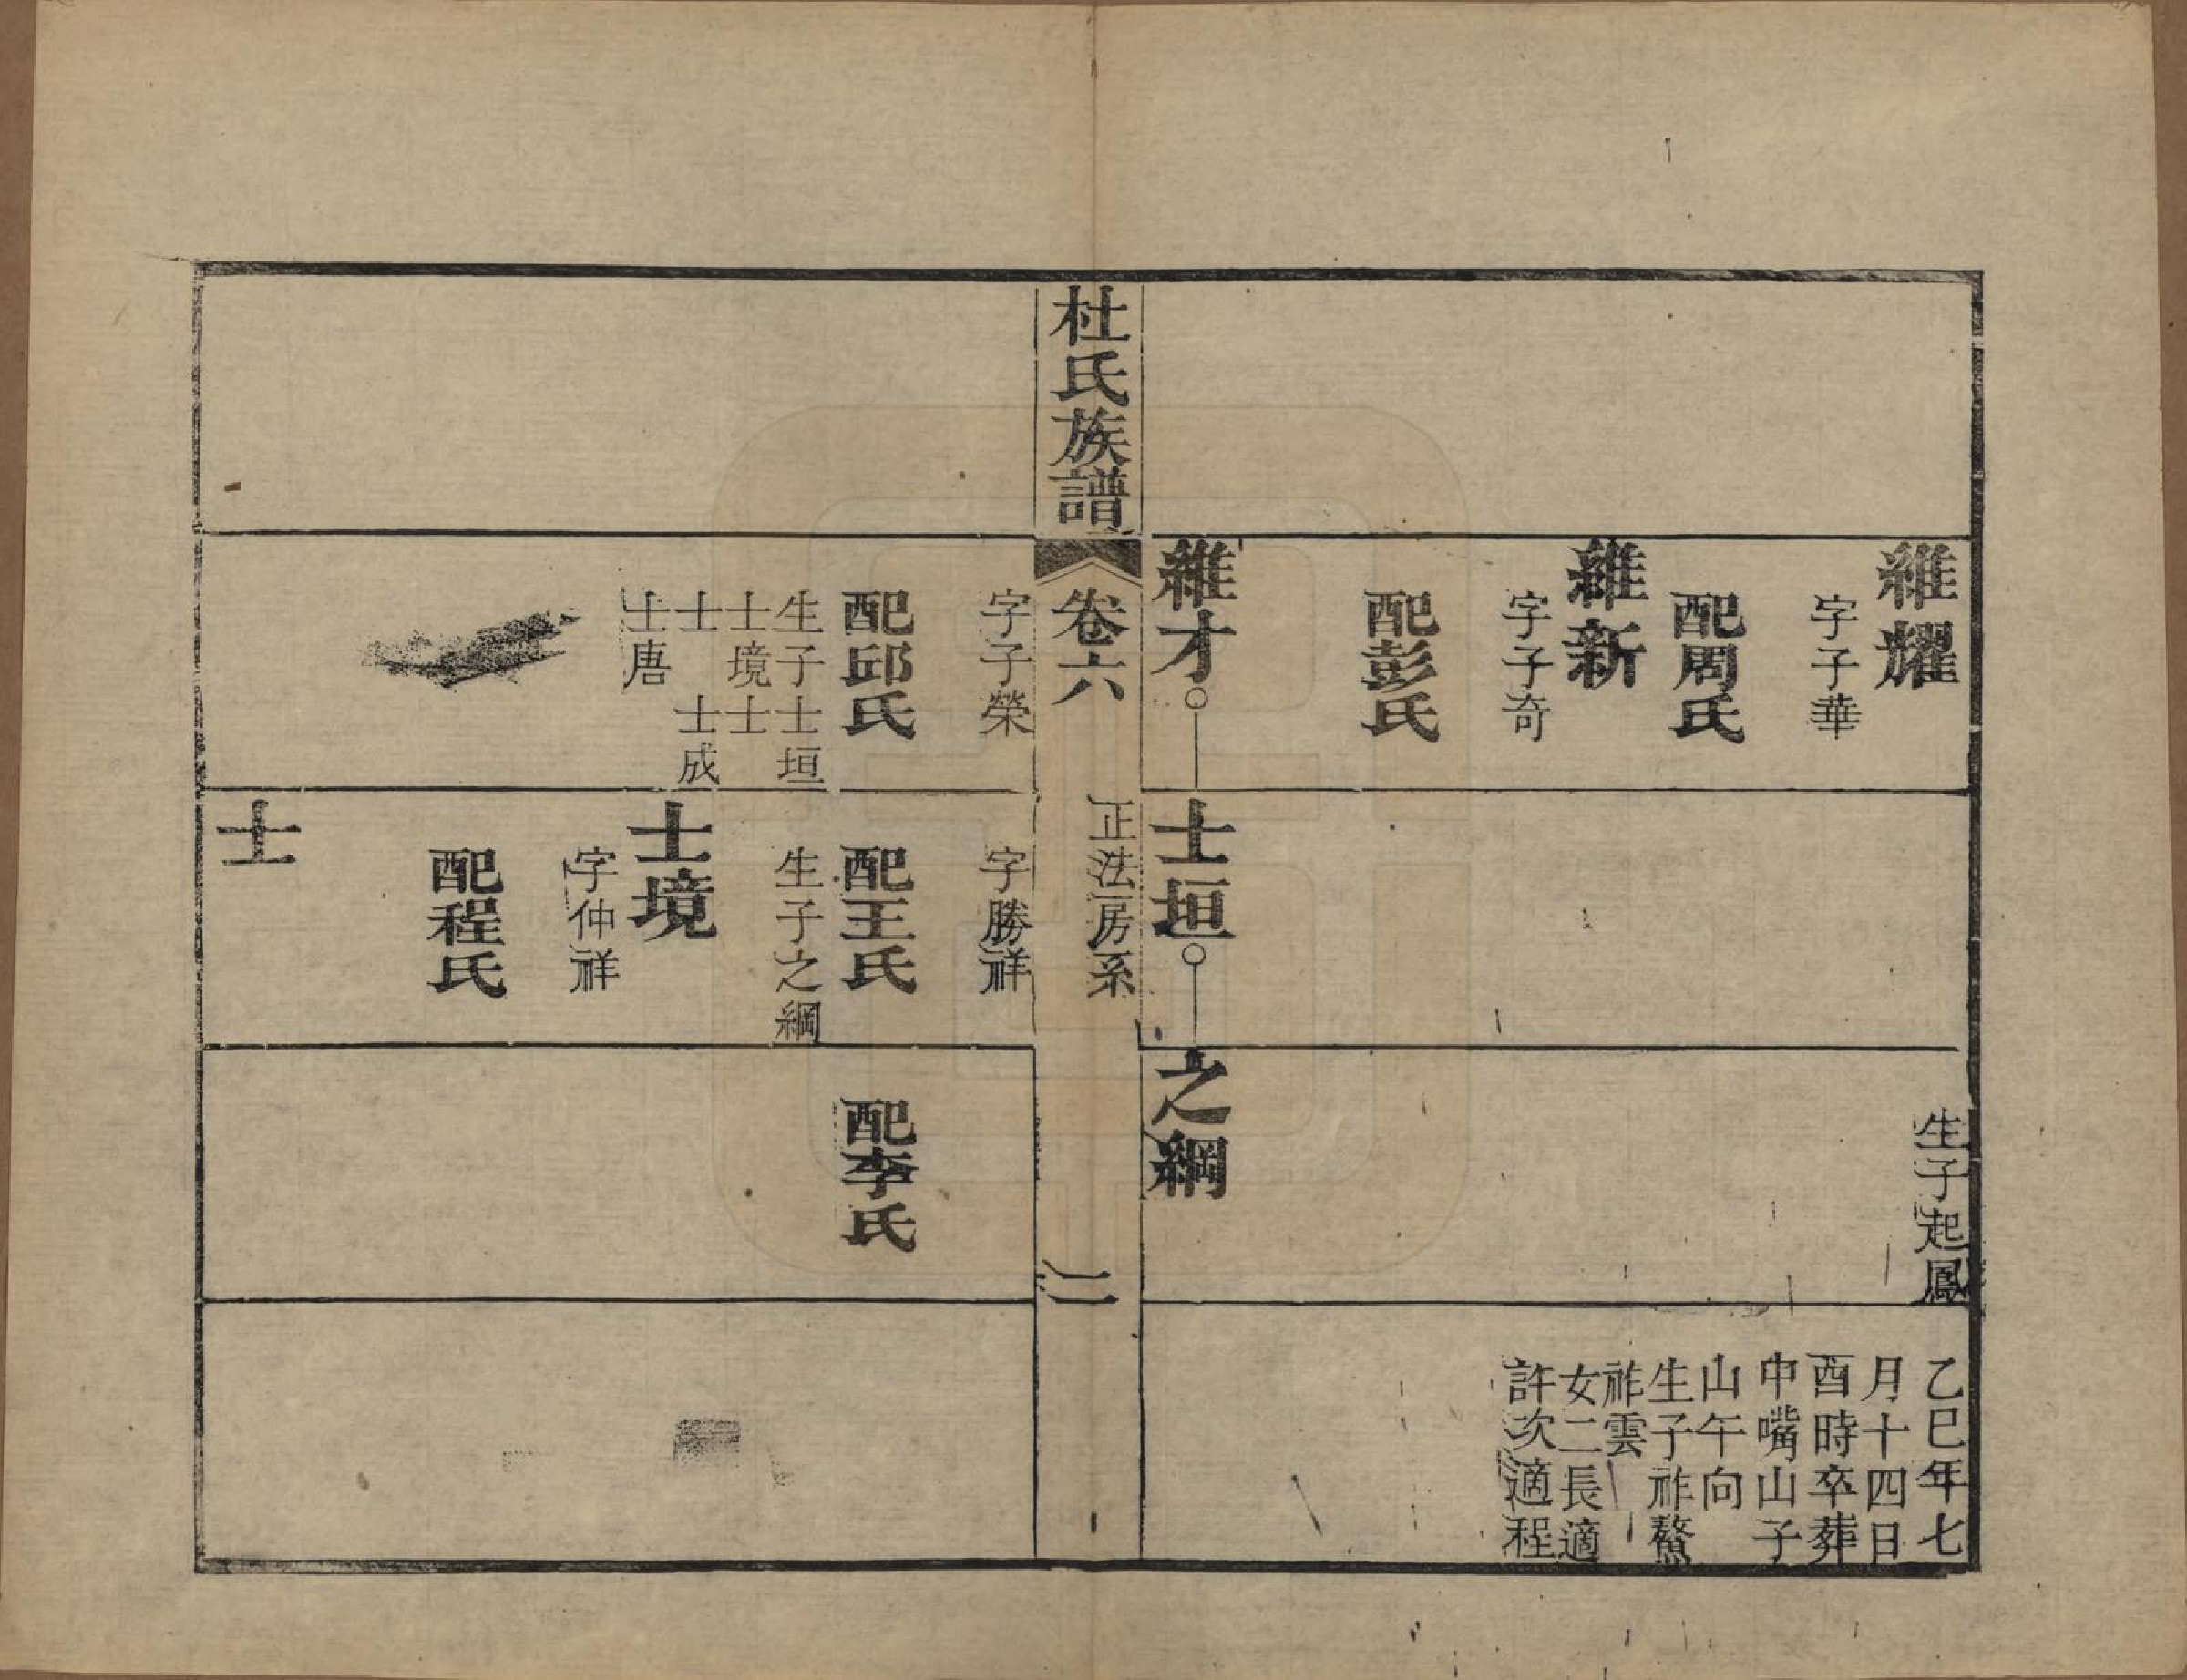 維耀
字子華
配周氏
維新
字子奇
配彭氏
維才
士垣
之綱
生子起鳳
乙巳年七
月十四日
酉時卒葬
中嘴山子
山午向
生子祚鰲
祚雲
女二長適
許次適程
杜氏族譜
卷六
正法房系
二
字子榮
配邱氏
生子士垣
士境士
士 士成
士唐
字勝祥
配王氏
生子之綱
士境
字仲祥
配程氏
士
配李氏